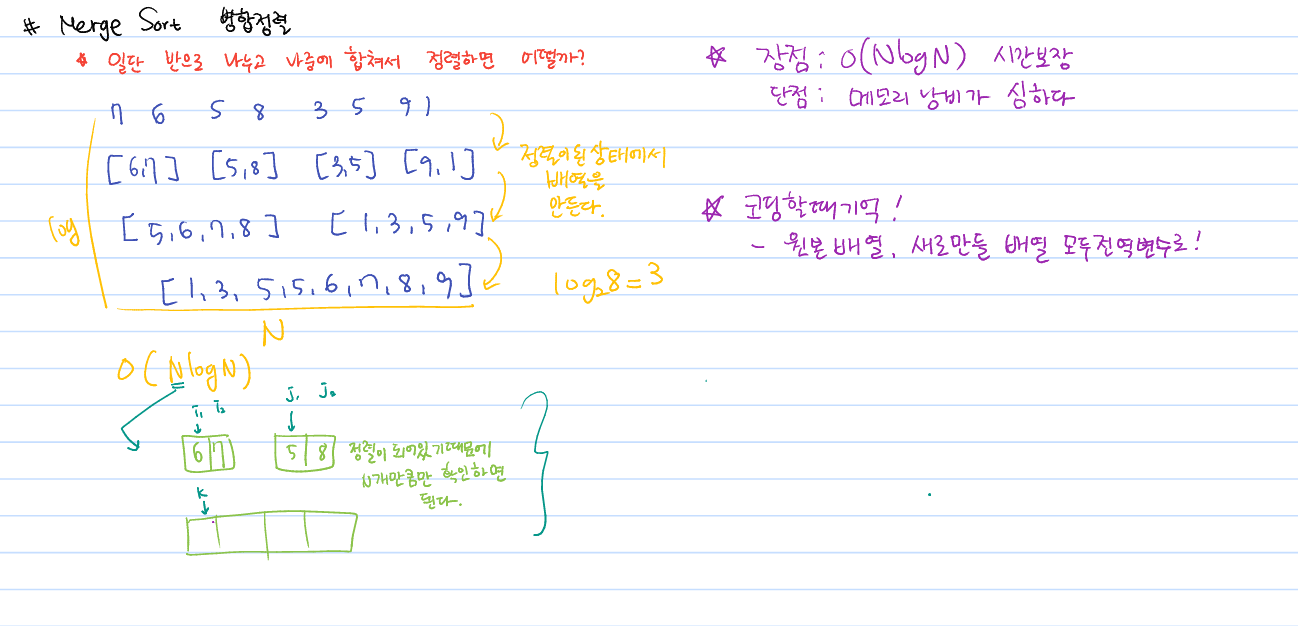 # Merge Sort 병합정렬
* 일단 반으로 나누고 나중에 합쳐서 정렬하면 어떨까?
7 6 5 8 3 5 9 1
[6,7] [5,8] [3,5] [9,1]
정렬이 된 상태에서
배열을
만든다.
log
[5,6,7,8] [1,3,5,9]
[1,3,5,5,6,7,8,9]
log₂8=3
N
O(NlogN)
i₁ i₂ j₁ j₂
6 7 5 8
정렬이 되어있기때문에
N개만큼만 확인하면
된다.
k
☆ 장점: O(NlogN) 시간보장
단점: 메모리 낭비가 심하다
☆ 코딩할때기억!
- 원본배열, 새로만들 배열 모두전역변수로!